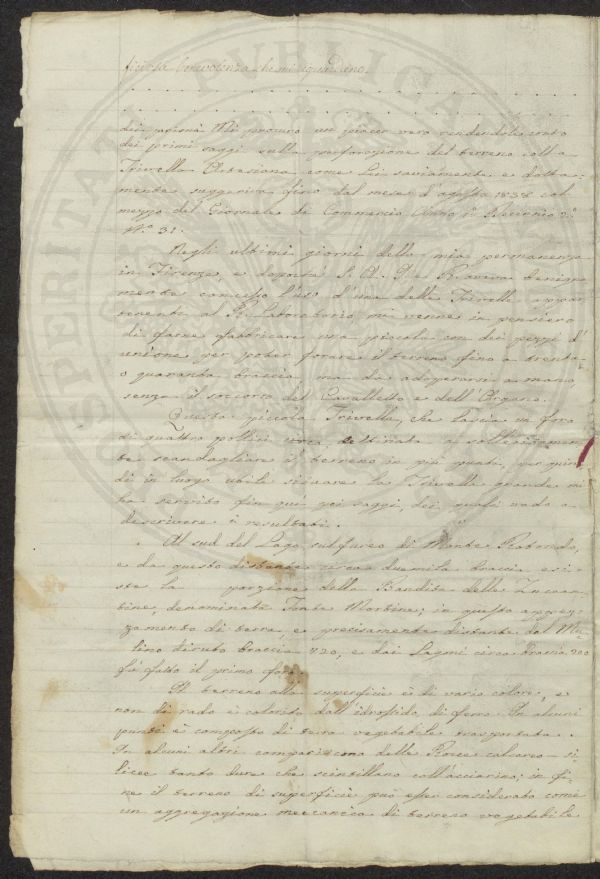 ficiosa benevolenza che mi riguardano
di prima Mi procuro un piacer vero rendendole conto
dei primi saggi sulla perforazione del terreno colla
Trivella Artesiana come Lei saviamente e dotta-
mente suggeriva fino dal mese d'agosto 1838 col
mezzo del Giornale di Commercio Anno 1º
Nº 31.
Negli ultimi giorni della mia permanenza
in Firenze e dopochè S. A. I. e R. aveva benigna
mente concesso l'uso d'una delle Trivelle appar
tenente al R. Laboratorio mi venne in pensiero
di farne fabbricare una piccola con dei pezzi d'
unione per poter forare il terreno fino a trenta
o quaranta braccia ma da adoperarsi a mano,
senza il soccorso del Cavalletto e dell'Argano.
Questa piccola Trivella, che lascia un foro
di quattro pollici circa destinata a sollecitamen
te scandagliare il terreno in più punti, per quin
di in luogo utile situare la Trivella grande mi
ha servito fin quì pei saggi, dei quali vado a
descrivere i resultati.
Al sud del Lago sulfureo di Monte Rotondo,
e da questo distante circa duemila braccia esi
ste la porzione della Bandita delle
denominata in questo appez
zamento di terra, e precisamente distante dal Mu
lino diruto braccia 420, e dai Lagoni circa Braccia 200
fù fatto il primo foro.
Il terreno alla superficie è di vario colore, e
non di rado è colorito dall'idrossido di ferro. In alcuni
punti è composto di terra vegetabile trasportata.
In alcuni altri compariscono delle Rocce calcareo-si
licee tanto dure che scintillano coll'acciarino; in fi
ne il terreno di superficie può esser considerato come
un aggregazione meccanica di terreno vegetabile
SPERITAT PVBLICA